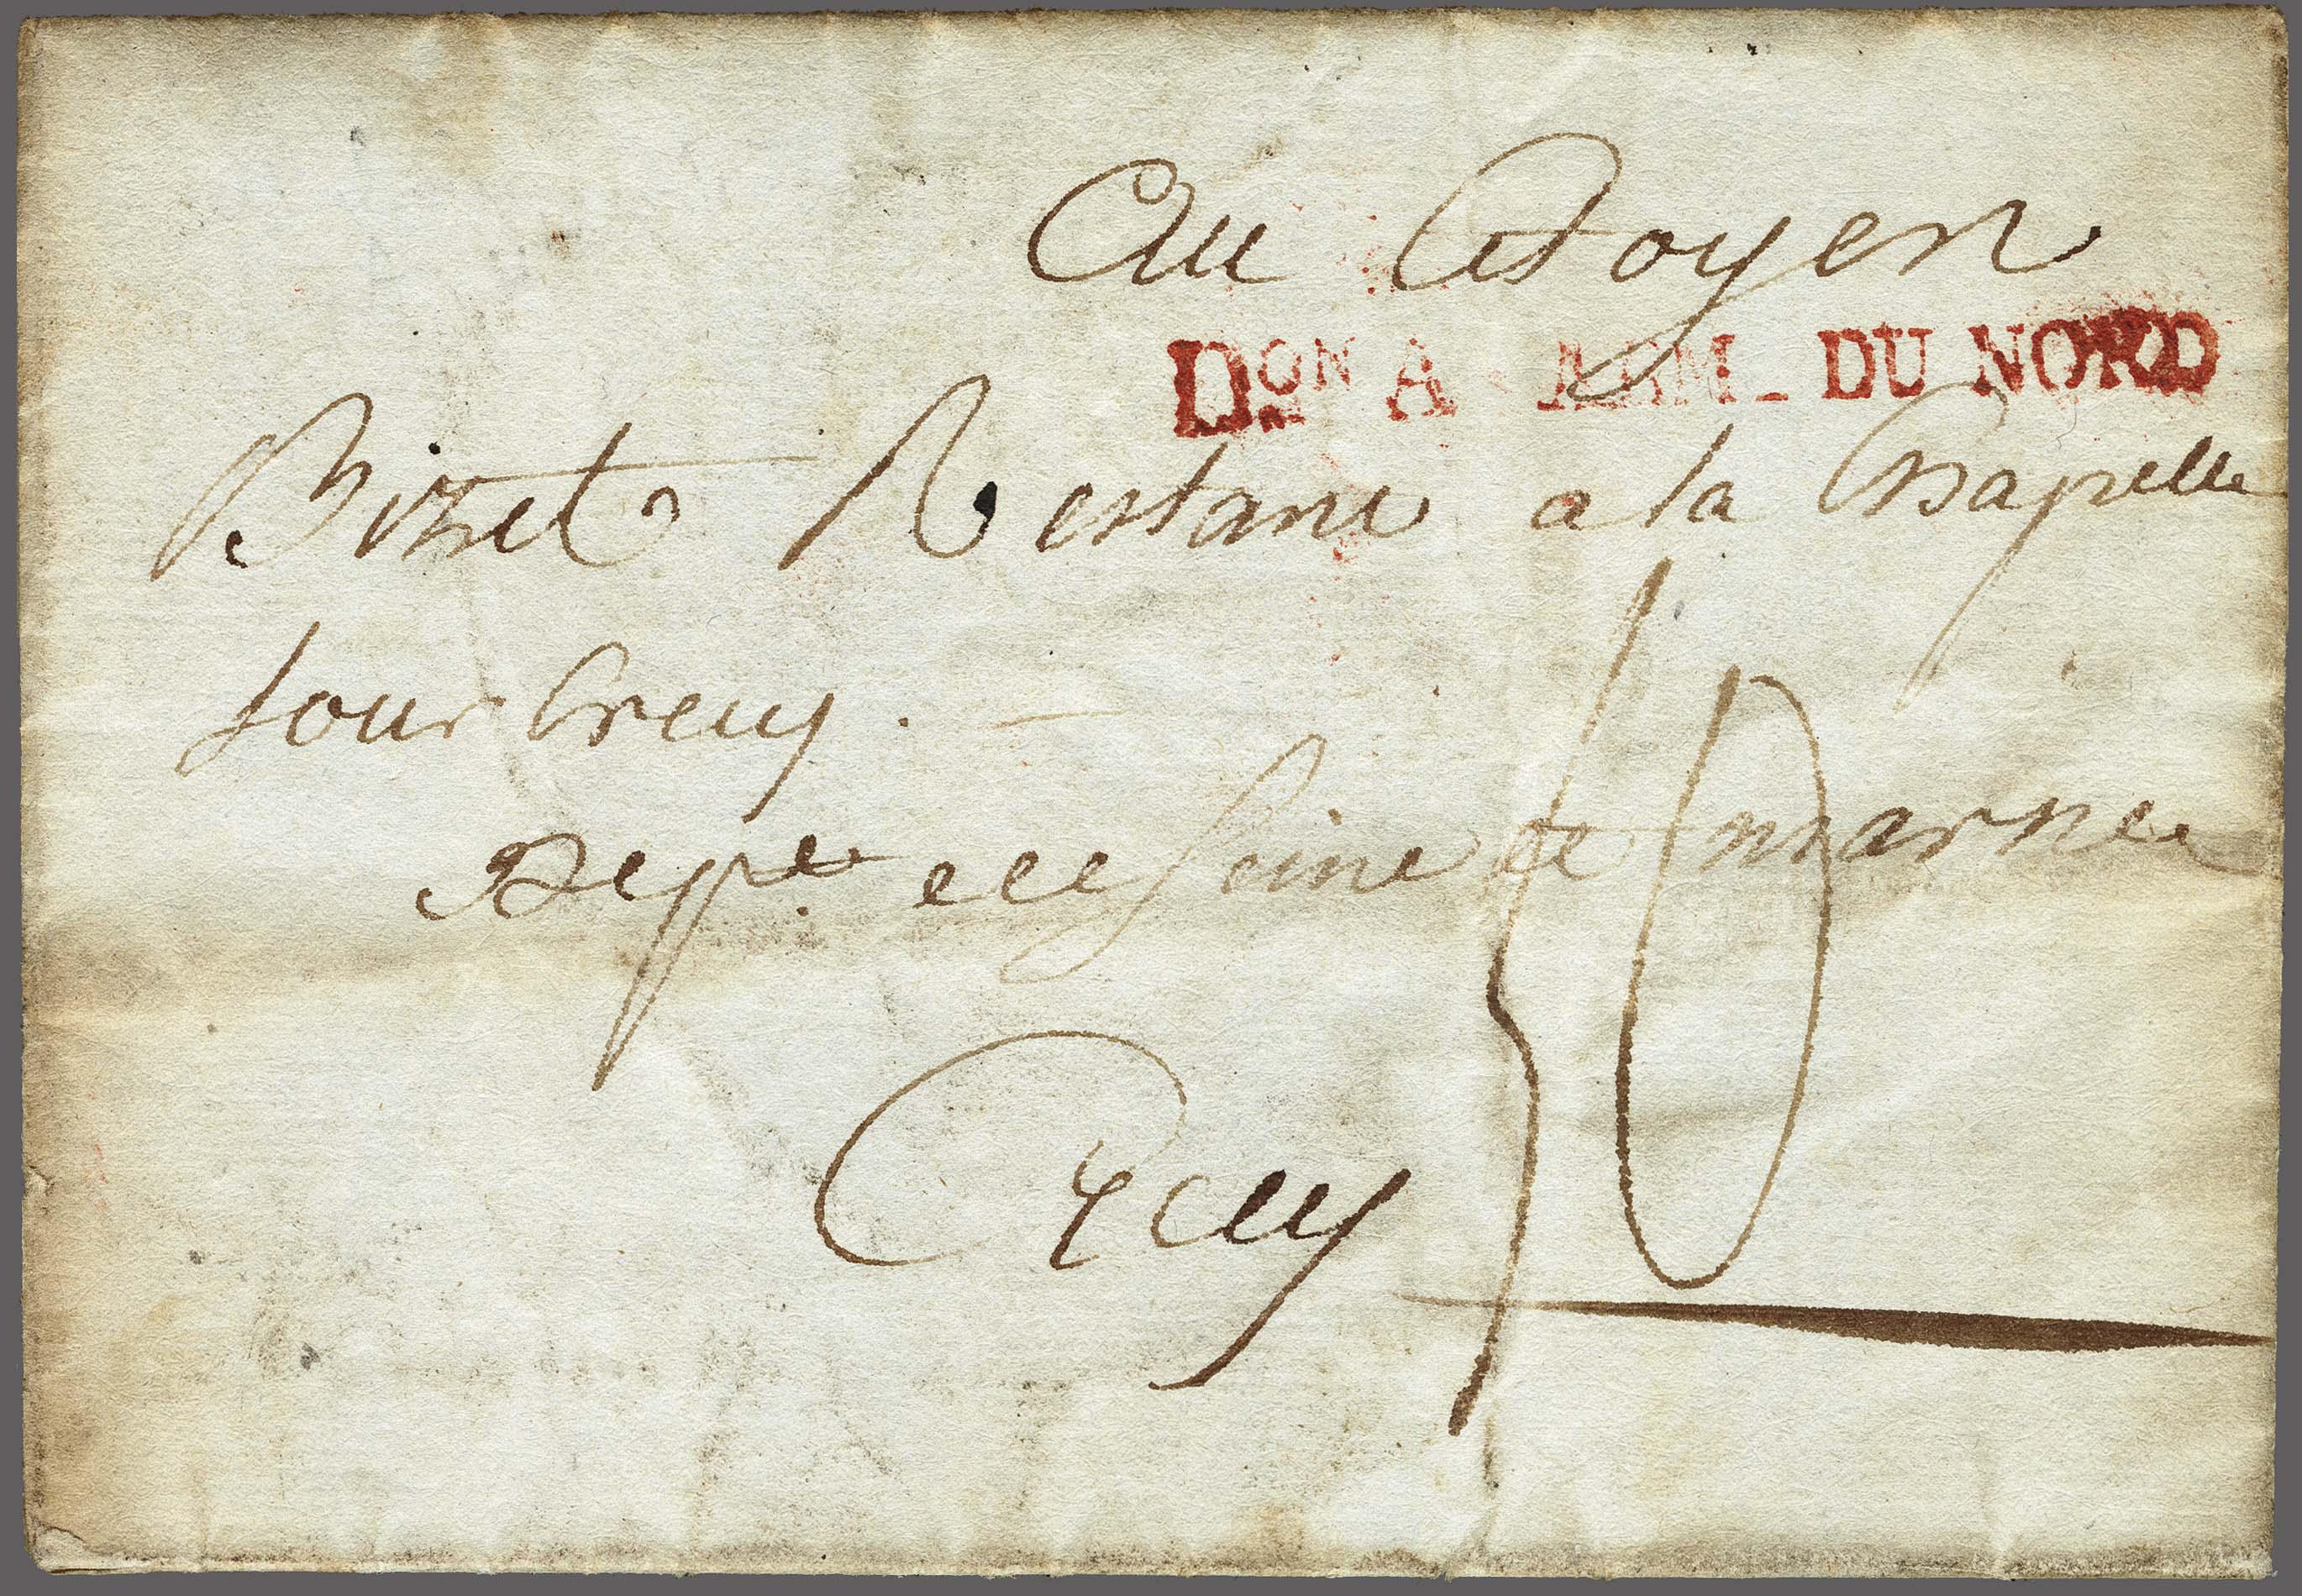 Au Citoyen
Don A ARM. DU NORD
Bizet Restant a la Chapelle
sour Crecy.
Dept de Seine et marne
50
Crecy